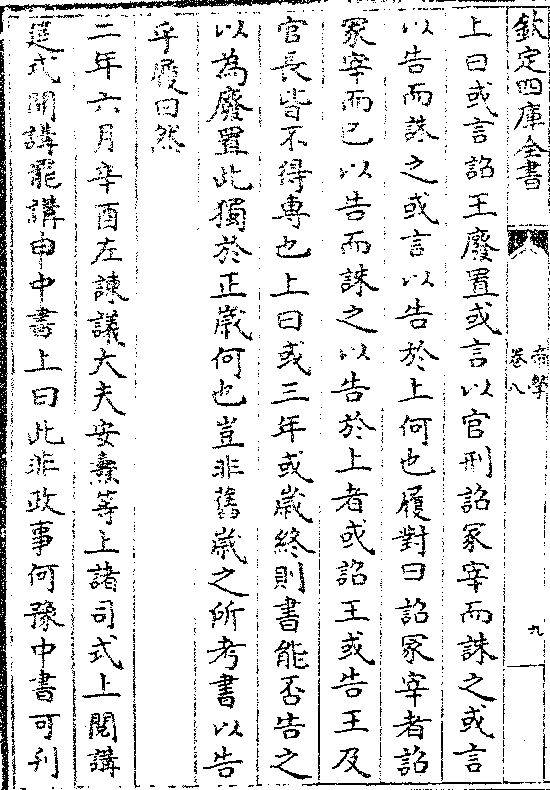 欽定四庫全書
帝學
卷八
九
上曰或言詔王廢置或言以官刑詔冢宰而誅之或言
以告而誅之或言以告於上何也履對曰詔冢宰者詔
冢宰而已以告而誅之以告於上者或詔王或告王及
官長皆不得専也上曰或三年或嵗終則書能否告之
以為廢置此獨於正嵗何也豈非舊嵗之所考書以告
乎履曰然
二年六月辛酉左諫議大夫安燾等上諸司式上閲講
筵式開講罷講申中書上曰此非政事何豫中書可刋